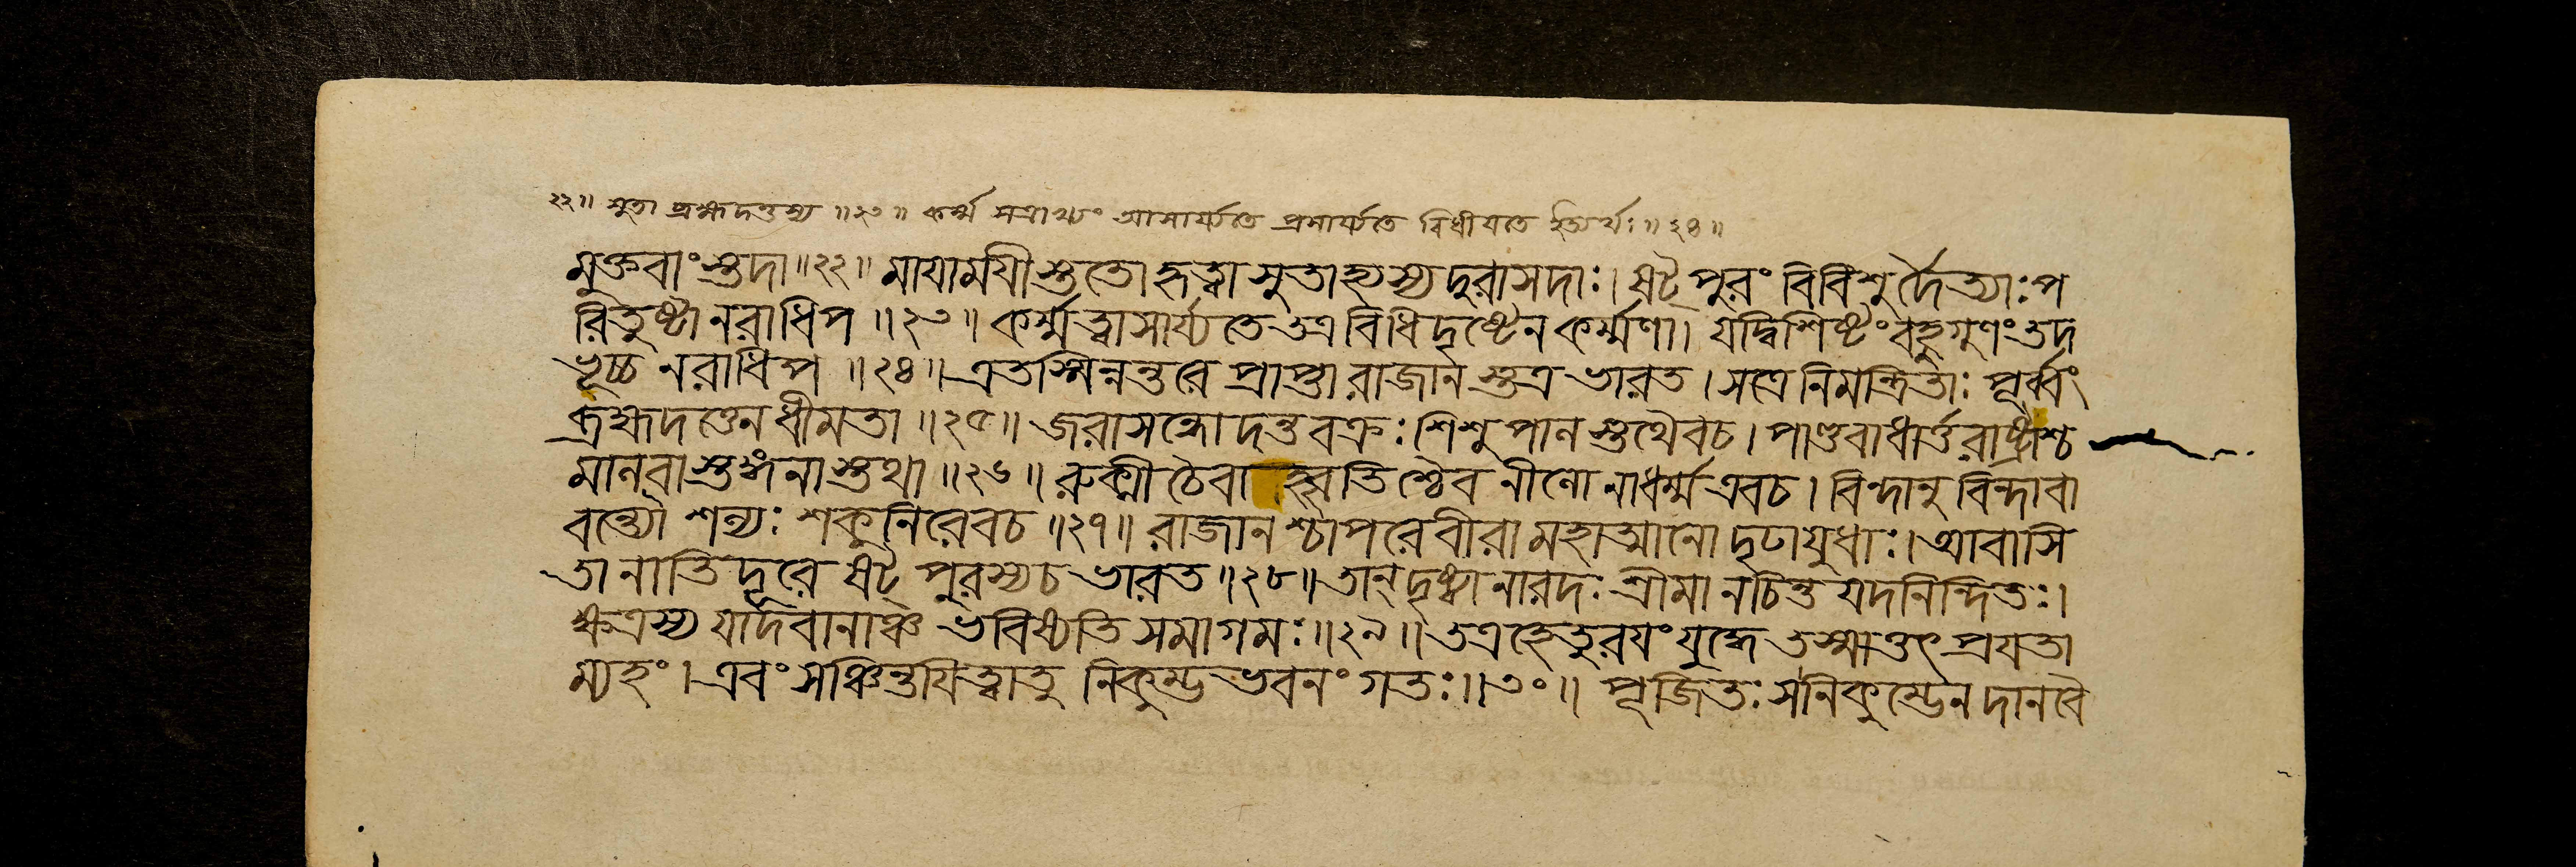 ২২॥ সুতা ব্রহ্মদত্তস্য ॥২৩॥ কর্ম্ম সত্রাখ্যং আসার্য্যতে প্রসার্য্যতে বিধীযতে ইত্যর্থঃ॥২৪॥
মুক্তবাংস্তুদা॥২২॥ মাযামযীস্ততো হৃত্বা সুতাহ্যস্য দুরাসদাঃ। ষট্পুরং বিবিশুর্দৈত্যাঃ প
রিতুষ্টা নরাধিপ ॥২৩॥ কর্ম্মত্বাসার্য্যতে তত্র বিধিদৃষ্টেন কর্ম্মণা। যদ্বিশিষ্টং বহুগুণং তদ
ভূচ্চ নরাধিপ ॥২৪॥ এতস্মিন্নন্তরে প্রাপ্তা রাজানস্তত্র ভারত। সত্রে নিমন্ত্রিতাঃ পূর্ব্বং
ব্রহ্মদত্তেন ধীমতা ॥২৫॥ জরাসন্ধো দন্তবক্রঃ শিশুপালস্তথৈবচ। পাণ্ডবা ধার্ত্তরাষ্ট্রাশ্চ
মালবাস্তঙ্গনাস্তথা ॥২৬॥ রুক্মী চৈবাহ্বৃতিশ্চৈব নীলো নাধর্ম্ম এবচ। বিন্দানুবিন্দাবা
বন্ত্যৌ শল্যঃ শকুনিরেবচ ॥২৭॥ রাজানশ্চাপরে বীরা মহাত্মানো দৃঢাযুধাঃ। আবাসি
তা নাতিদূরে ষট্পুরস্যচ ভারত ॥২৮॥ তান্ দৃষ্ট্বা নারদঃ শ্রীমানচিন্তযদনিন্দিতঃ।
ক্ষত্রস্য যাদবানাঞ্চ ভবিষ্যতি সমাগমঃ॥২৯॥ তত্র হেতুরযং যুদ্ধে তস্মাত্তৎ প্রযতা
ম্যহং। এবং সঞ্চিন্তযিত্বাতু নিকুম্ভভবনং গতঃ॥৩০॥ পূজিতঃ স নিকুম্ভেন দানবৈ